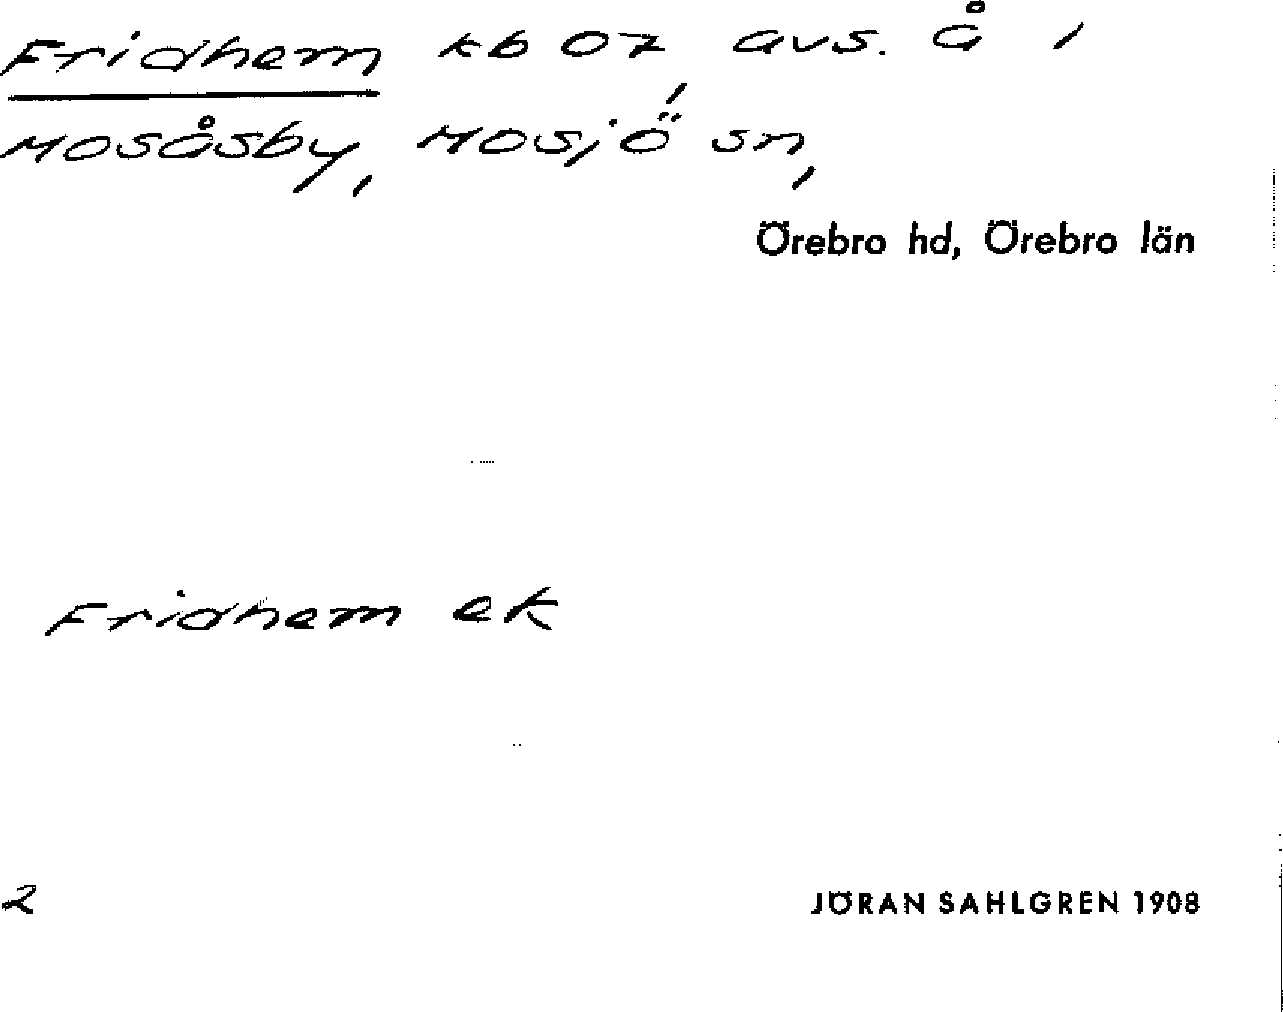 Fridhem kb 07, avs. å i
Mosåsby, Mosjö sn,
Örebro hd, Örebro län
Fridhem ek
2
JÖRAN SAHLGREN 1908